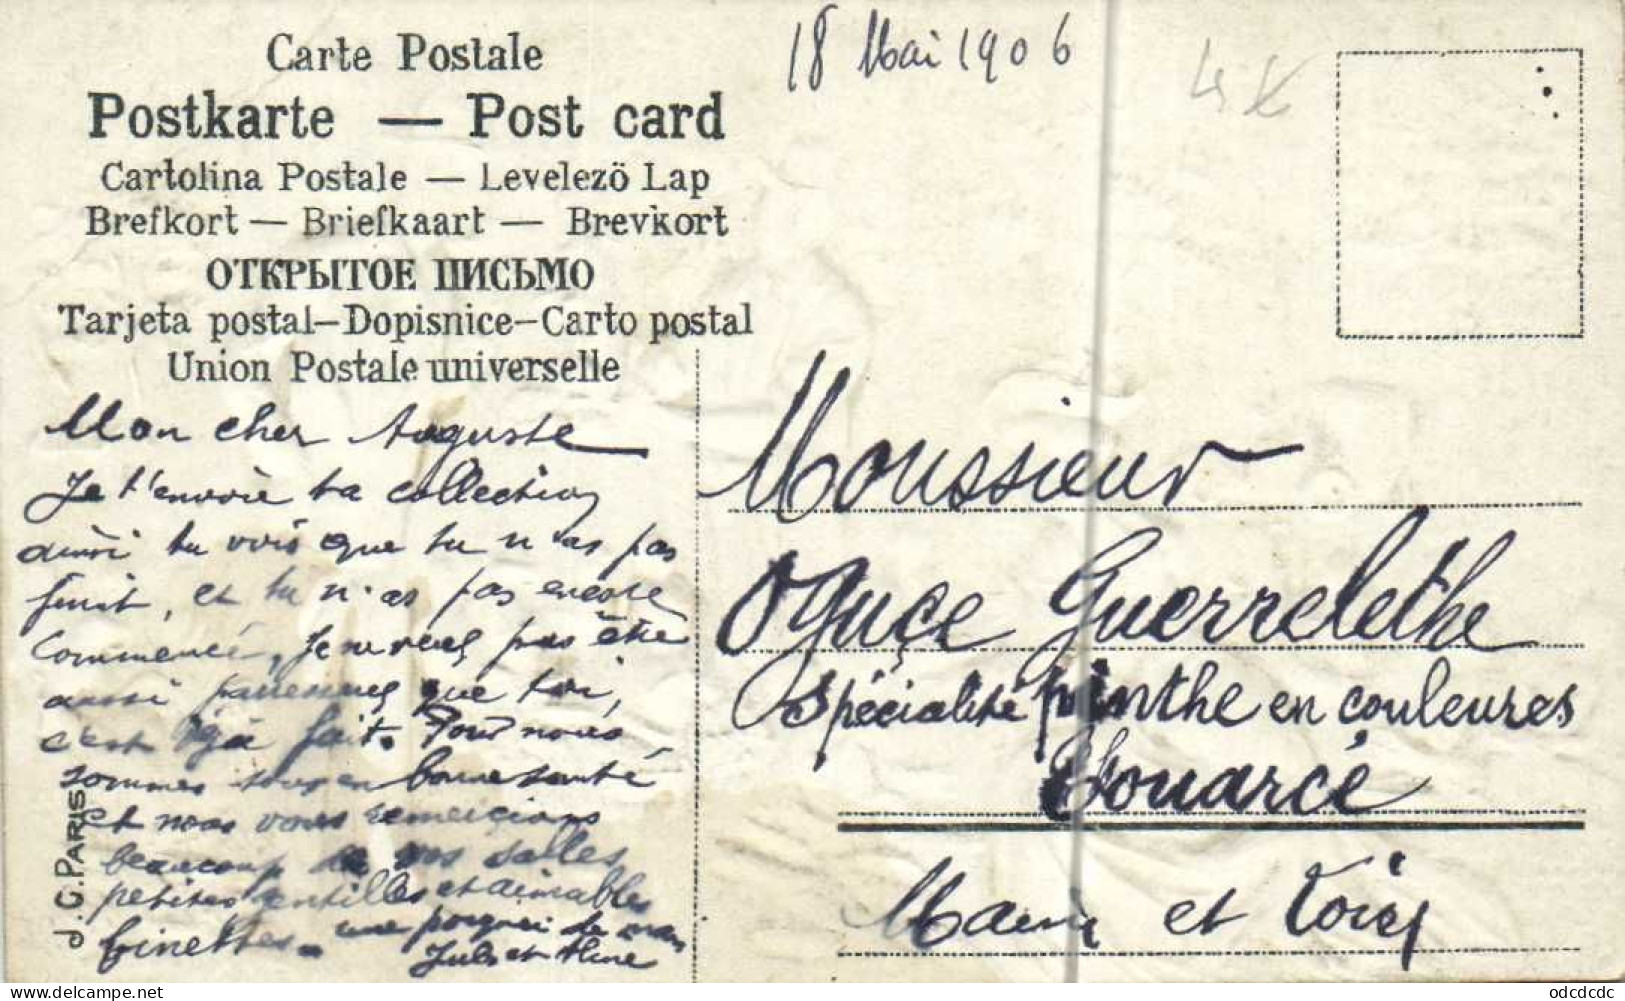 18 Mai 1906
Carte Postale
Postkarte — Post card
Cartolina Postale — Levelezö Lap
Brefkort — Briefkaart — Brevkort
ОТКРЫТОЕ ПИСЬМО
Tarjeta postal—Dopisnice—Carto postal
Union Postale universelle
Mon cher Auguste
Je t'envoie ta collection
ainsi tu vois que tu n'as pas
finit, et tu n'as pas encore
commencé, Je ne veux pas être
aussi que toi,
c'est déjà fait. Pour nous
sommes tous en bonne santé
et nous vous remercions
beaucoup de vos salles
petites gentilles et aimables
binettes. une de main
Jules et Aline
J.C. PARIS
Moussieur
Oguçe Guerrelethe
Spécialité pinthe en couleures
Thouarcé
Maine et Loire
odcdcdc